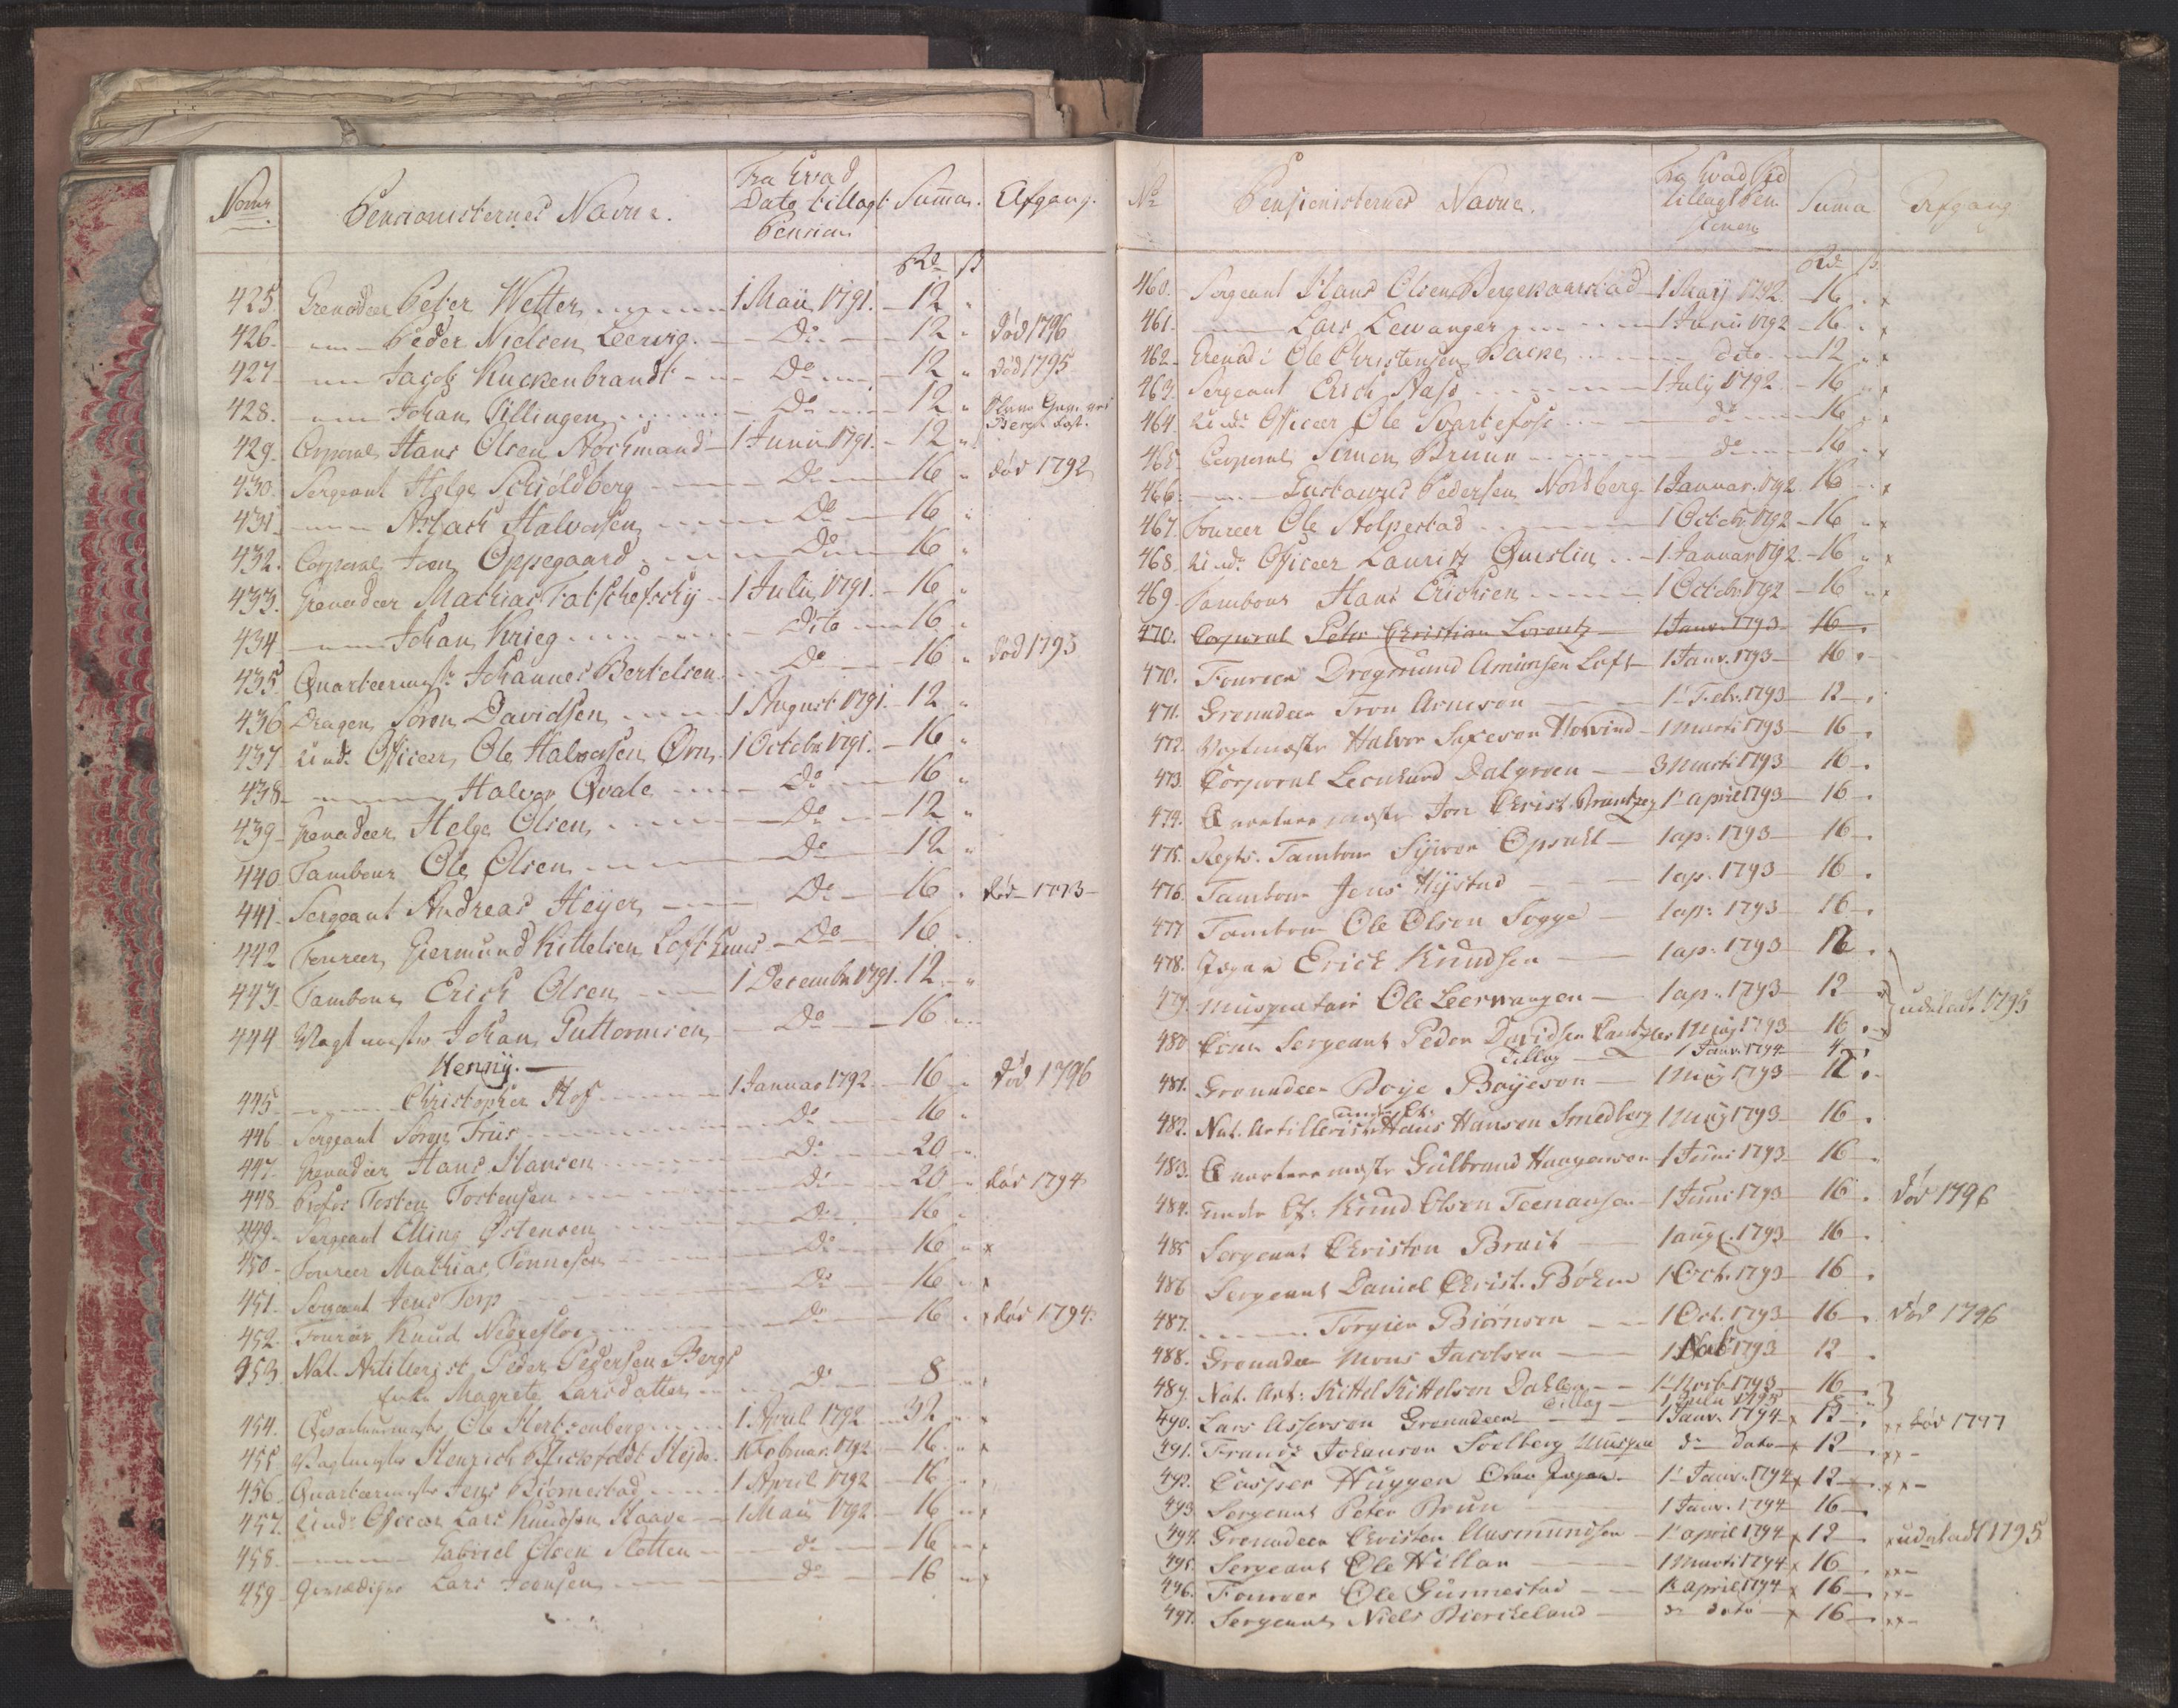 Nomr Pensionisternes Navne. Fra hvad Dato tillagt Pension Summa. Afgang.
Rd ß
425. Grenadeer Peter Wetter 1 Maii 1791. 12 "
426. Peder Nielsen Leervig. Do 12 " død 1796
427 Jacob Kuckenbrandt Do 12 " død 1795
428. Johan Tillingen Do 12 "
429. Corporal Hans Olsen Stockmand 1 Junii 1791. 12 "
430. Sergeant Helge Schiøldberg Do 16 " død 1792
431. Aslach Halvorsen Do 16 "
432. Corporal Joen Oppegaard Do 16 "
433. Grenadeer Mathias Fatschefschy 1 Julii 1791. 16 "
434 Johan Krieg Dito 16 "
435. Quarteermestr Johannes Bertelsen Do 16 " død 1793
436 Dragon Søren Davidsen 1 August 1791. 12 "
437 Undr Officeer Ole Halvorsen Ørn 1 October 1791. 16 "
438 Halvor Qvale Do 16 "
439 Grenadeer Helge Olsen Do 12 "
440. Tambour Ole Olsen Do 12 "
441. Sergeant Andreas Heyer Do 16 " død 1793
442 Foureer Giermund Kittelsen Lofthuus Do 16 "
443. Tambour Erich Olsen 1 Decembr 1791. 12 "
444 Wagtmestr Johan Guttormsen Henny. Do 16
445 Christopher Hof 1 Januar 1792 16 " død 1796
446 Sergeant Søren Friis Do 16 "
447. Grenadeer Hans Hansen Do 20 "
448. Profos Torsten Torstensen Do 20 " død 1794
449. Sergeant Elling Østensen Do 16 "
450 Foureer Mathias Tønnesen Do 16 " x
451. Sergeant Jens Torp Do 16 " x
452. Fourer Knud Do 16 " x død 1794.
453 Nat. Artillerist Peder Pedersen Bergs
Enke Magrete Larsdatter Do 8 "
454. Quarteermestr Ole Hertzenberg 1 April 1792 32 " x
455 Wagtmestr Henrich Heyde. 1 Februar 1792 16 " x
456. Quarteermestr Jens Biørnestad 1 April 1792 16 "
457. Undr Officeer Lars Knudsen Haave 1 Maii 1792 16 " x
458. Gabriel Olsen Sletten do 16 " x
459 Lars Joensen do 16 " x
No Pensionisternes Navne. Fra hvad Tid tillagt Pensionen Summa Afgang
Rd ß
460. Sergeant Hans Olsen 1 Maij 1792. 16 " x
461. Lars Lewanger 1 Junii 1792 16 " x
462 Grenad: Ole Christensen Backe dito 12 " x
463. Sergeant Erich Aas 1 July 1792. 16 " x
464 Undr Officeer Ole Svartefos do 16 " x
465. Corporal Simen Bruun do 16 " x
466. Gustavus Pedersen Nordberg 1 Januar. 1792. 16 " x
467. Foureer Ole Stolpestad 1 Octobr 1792 16 " x
468. Undr Officeer Lauritz Quislin 1 Januar 1792. 16 " x
469. Tambour Hans Erichsen 1 Octobr 1792 16 " x
470. Corporal Peter Christian Lorentz 1 Janv. 1793 16
470. Foureer Dregmund Amimsen Loft 1 Janv. 1793 16 "
471. Grenadeer Tron Arneson 1 Febr. 1793 12
472. Wagtmester Halvor Saxeson Horvind 1 Marti 1793 16
473. Corporal Leonhard Dalgreen 3 Marti 1793 16
474. Quarteermestr Jon Christ. 1 april 1793 16
475. Regts. Tambour Syver Opsahl 1 ap: 1793 16
476. Tambour Jens Hystad 1 ap. 1793 16
477 Tambour Ole Olsen Sogge 1 ap: 1793 16
478. Jæger Erich Knudsen 1 ap: 1793 12
479. Musqueteer Ole Leerwangen 1 ap. 1793 12
480 Sergeant Peder Davidsen 1 Maj 1793 16
Tillæg 1 Janv. 1794 4
udsladt 1795
481. Grenadeer Boye Boyeson 1 Maj 1793 12
482. Nat. Artillerist Hans Hansen Smedberg 1 Maj 1793 16
483. Quarteermestr Gulbrand Haagensen 1 Juni 1793 16
484. Under Of: Knud Olsen Teenansen 1 Juni 1793 16 død 1796
485 Sergeant Christen Brait 1 aug. 1793 16
486 Sergeant Daniel Christ. Bøhm 1 Oct. 1793 16
487. Torgier Biørnsen 1 Oct. 1793 16 død 1796
488. Grenadeer Mons Jacobsen 1 Nob 1793 12
489. Nat. Art: Kittel Kittelsen Dahlen 1 Novb. 1793 16
Tillæg
490. Lars Assersen Grenadeer 1 Janv. 1794 12 xx død 1797
491. Frantz Johanson Soelberg do dato 12 xx
492. Casper Huggen 1 Janv. 1794 x 12 xx
493 Sergeant Peter Brun 1 Janv. 1794 16
494. Grenadeer Christen Aasmundsen 1 april 1794 x 12 udsladt 1795
495. Sergeant Ole Hillan 1 Marti 1794 x 16 xx
496. Foureer Ole Gunnestad 1 april 1794 x 16 xx
497. Sergeant Niels Bierkeland do dato x 16 xx